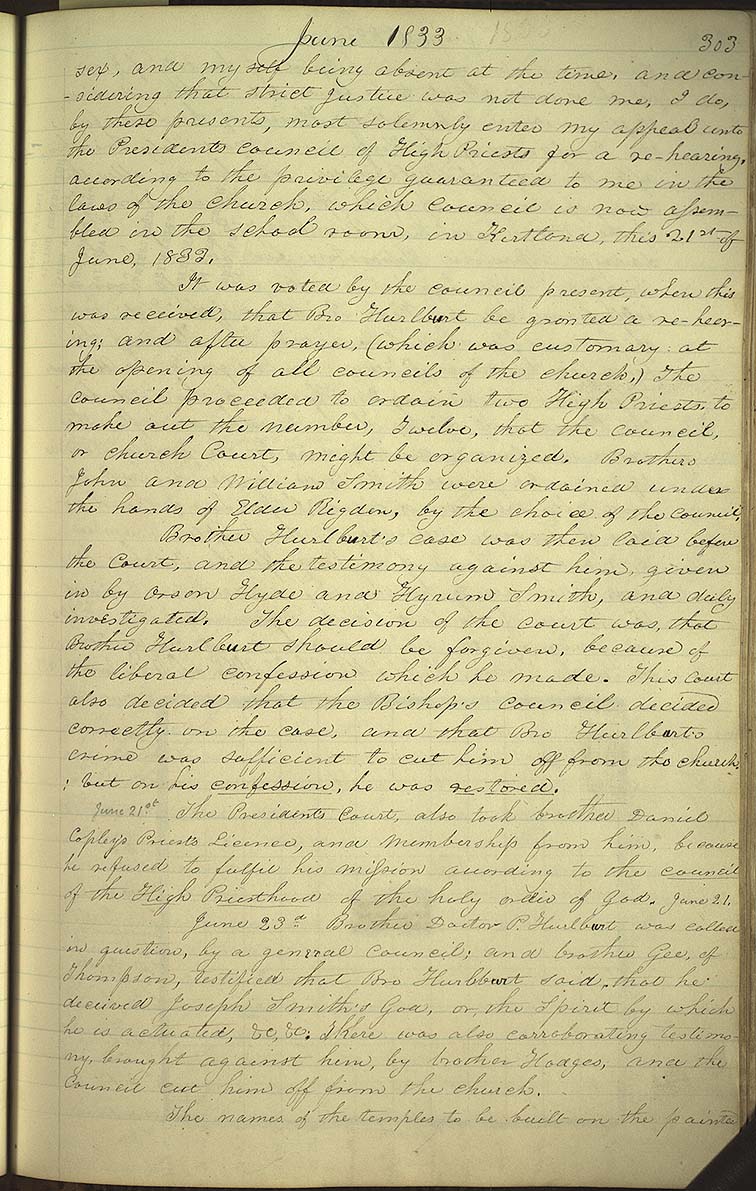 June 1833
303
sex, and myself being absent at the time, and con-
-sidering that strict justice was not done me, I do,
by these presents, most solemnly enter my appeal unto
the Presidents council of High Priests for a re-hearing,
according to the privilege guaranteed to me in the
laws of the church, which council is now assem-
bled in the school room, in Kirtland, this 21st of
June, 1833.
It was voted by the council present, when this
was received, that Bro Hurlburt be granted a re-hear-
ing; and after prayer, (which was customary at
the opening of all councils of the church,) The
council proceeded to ordain two High Priests, to
make out the number, Twelve, that the council,
or church Court, might be organized. Brothers
John and William Smith were ordained under
the hands of Elder Rigdon, by the choice of the council,
Brother Hurlburt's case was then laid before
the Court, and the testimony against him, given
in by Orson Hyde and Hyrum Smith, and duly
investigated. The decision of the court was, that
Brother Hurlburt should be forgiven, because of
the liberal confession which he made. This court
also decided that the Bishop's council decided
correctly on the case, and that Bro Hurlburts
crime was sufficient to cut him off from the church;
; but on his confession, he was restored.
June 21st The Presidents Court, also took brother Daniel
Copley's Priests Licence, and Membership from him, because
he refused to fulfil his mission according to the council
of the High Priesthood of the holy order of God. June 21.
June 23d Brother Doctor P. Hurlburt was called
in question, by a general council; and brother Gee, of
Thompson, testified that Bro Hurlburt said, that he
deceived Joseph Smith's God, or, the Spirit by which
he is actuated, &c, &c. There was also corroborating testimo-
ny, brought against him, by brother Hodges, and the
Council cut him off from the church.
The names of the temples to be built on the painted